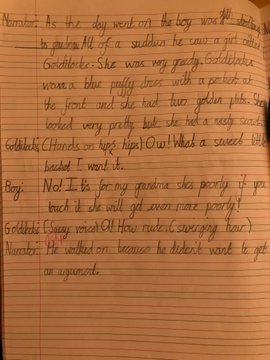 Narrator: As the day went on the boy was
to grandma. All of a sudden he saw a girl called
Goldilocks. She was very greedy. Goldilocks
wore a blue puffy dress with a pocket at
the front and she had two golden plats. She
looked very pretty but she had a nasty
Goldilocks (Hands on hips) Ow! Whats a sweet little
basket I want it.
Boy: No! It is for my grandma shes poorly if you
touch it she will get even more poorly!
Goldilocks (Sassy voice) O! How rude. (swinging hair)
Narrator: He walked on because he dident want to get
an argument.